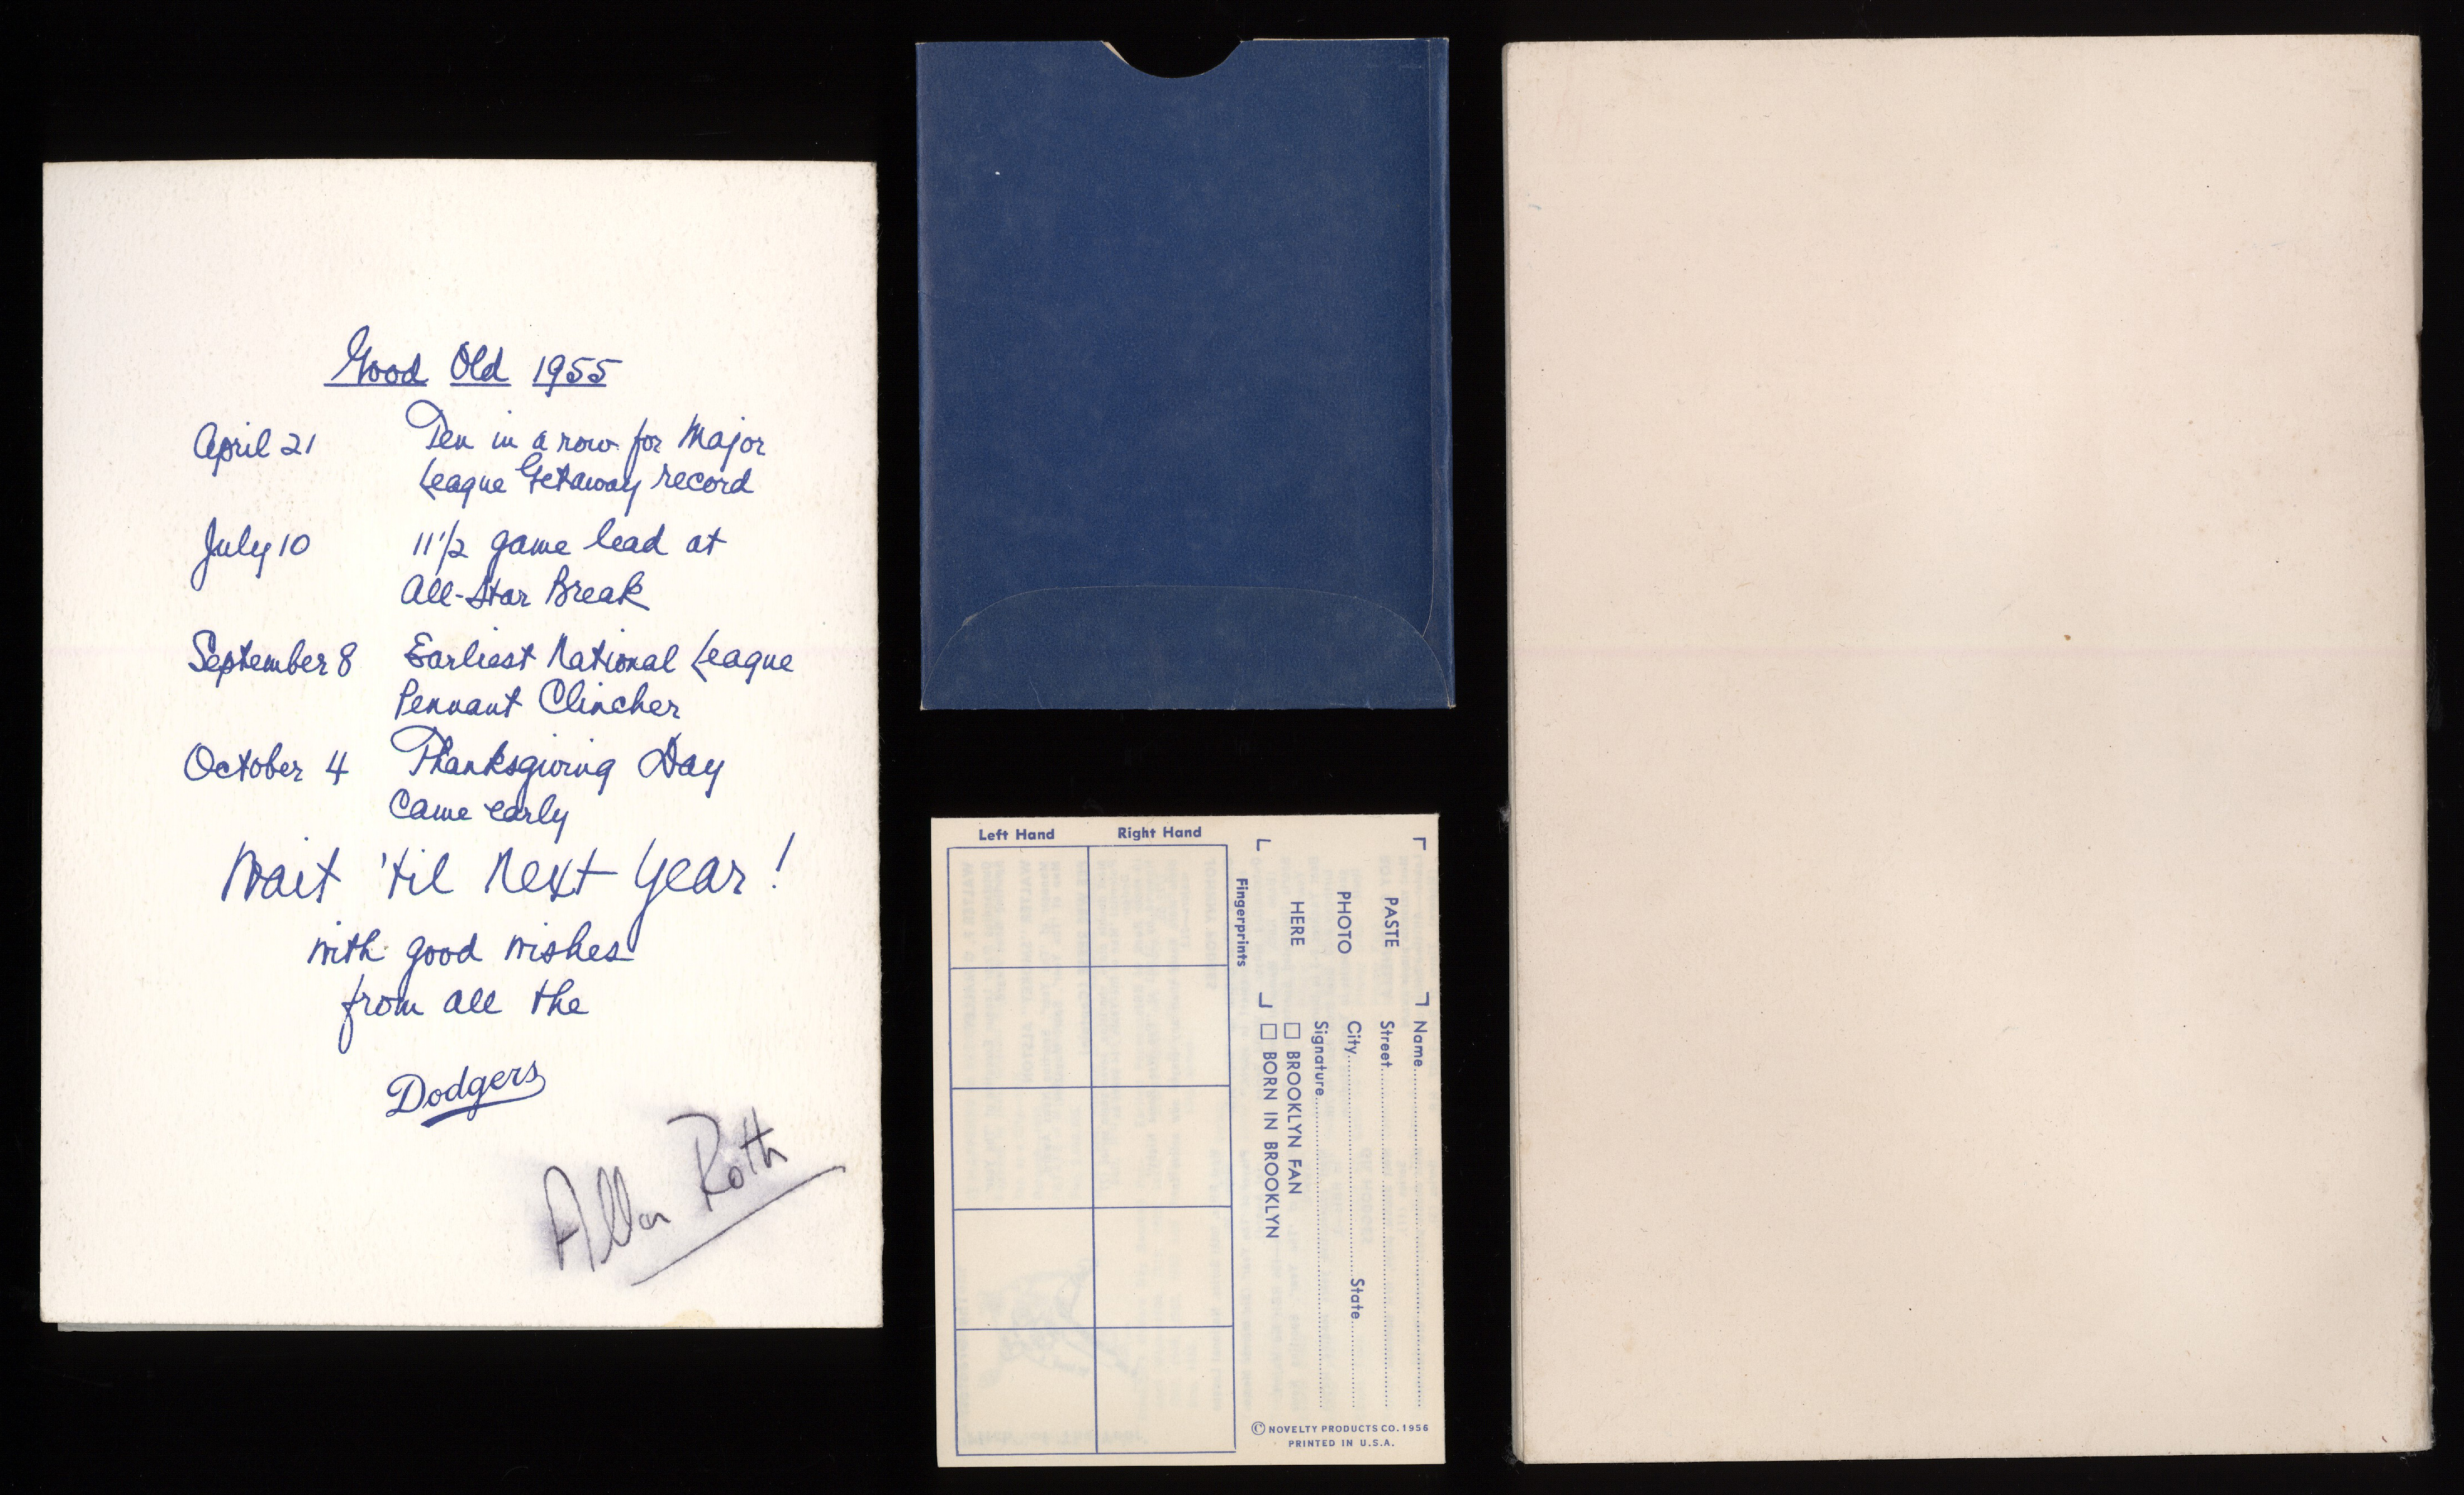 Good Old 1955
April 21 Ten in a row for Major
League Getaway record
July 10 11 1/2 game lead at
All-Star Break
September 8 Earliest National League
Pennant Clincher
October 4 Thanksgiving Day
Came early
Wait 'til Next Year!
with good wishes
from all the
Dodgers
Allan Roth
Left Hand Right Hand
Fingerprints
PASTE
PHOTO
HERE
Name
Street
City State
Signature
BROOKLYN FAN
BORN IN BROOKLYN
© NOVELTY PRODUCTS CO. 1956
PRINTED IN U.S.A.